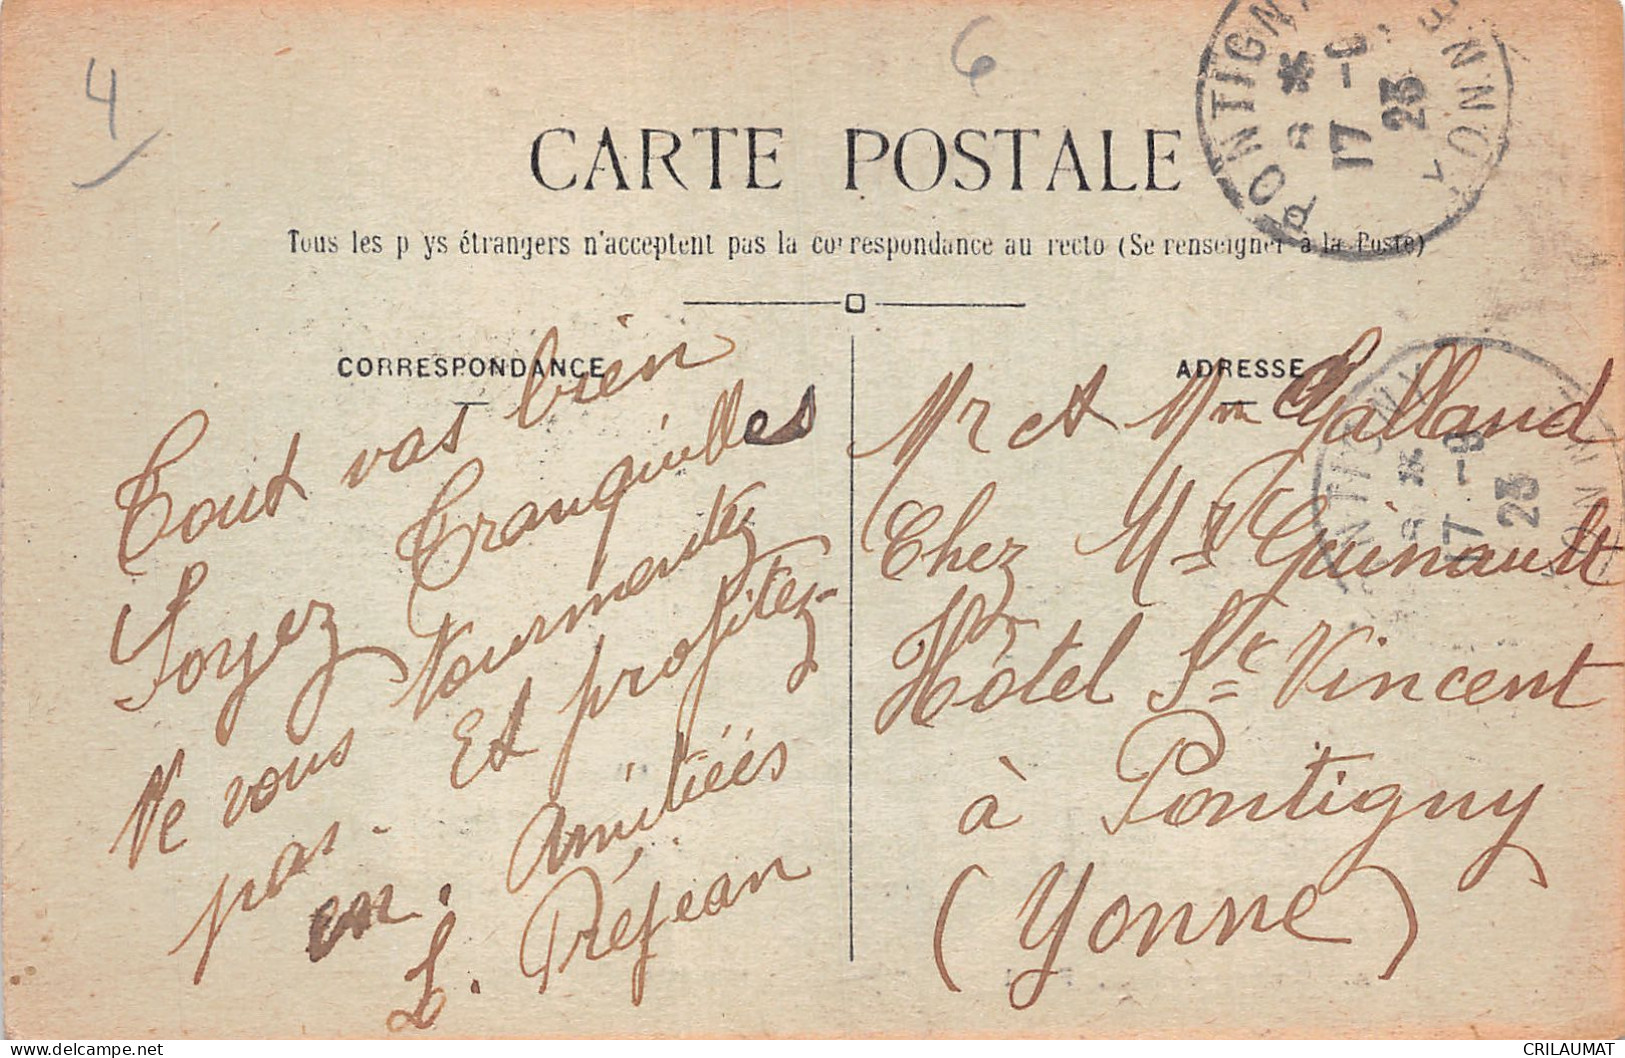 4
6
PONTIGNY YONNE
17 -9
23
CARTE POSTALE
Tous les p ys étrangers n'acceptent pas la correspondance au recto (Se renseigner à la Poste)
CORRESPONDANCE
Tout vas bien
Soyez Tranquilles
Ne vous Tourmentez
pas. Et profitez-
en. Amitiées
L. Préjean
ADRESSE
PONTIGNY YONNE
17 -9
23
Mr et Mm Galland
Chez Mr Guinault
Hôtel St Vincent
à Pontigny
(Yonne)
CRILAUMAT